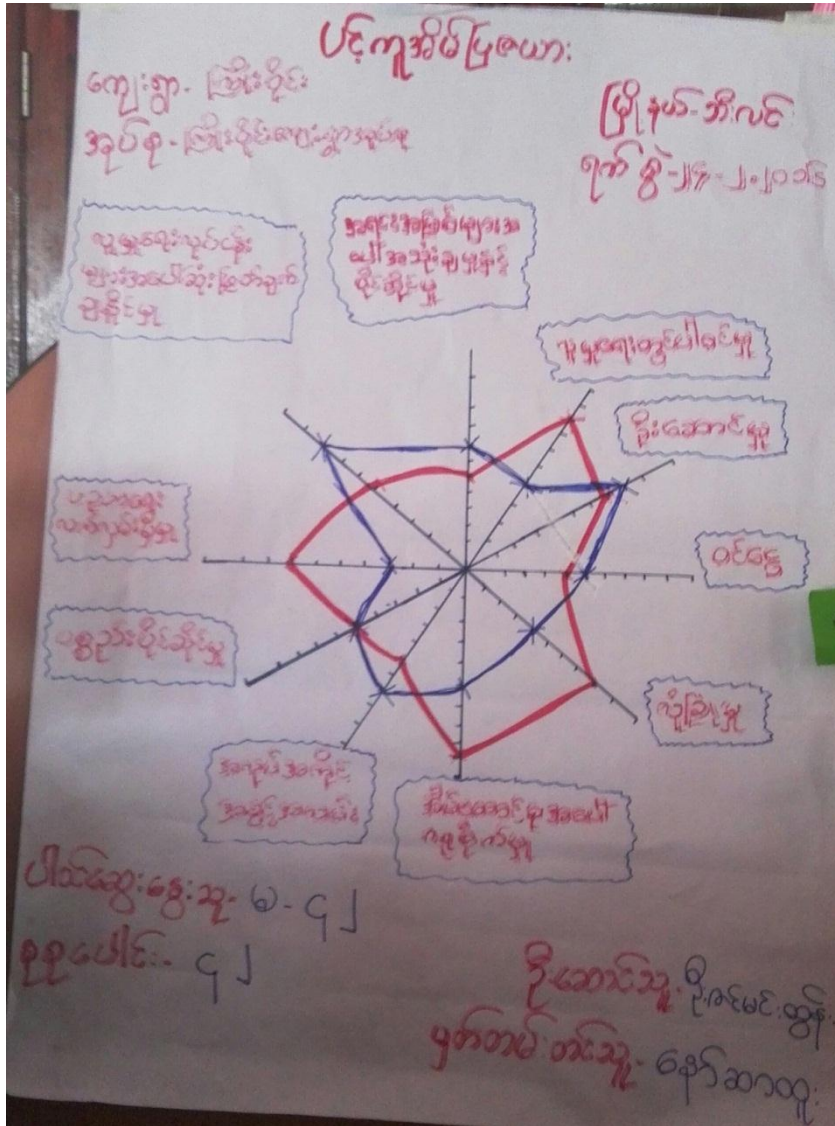 ပင့်ကူအိမ်ပြဇယား
ကျေးရွာ- ကြိုးဝိုင်း
အုပ်စု- ကြိုးဝိုင်းကျေးရွာအုပ်စု
မြို့နယ်-ဘီးလင်း
ရက်စွဲ-၂၄-၂-၂၀၁၆
လူမှုရေးလုပ်ငန်း
များအပေါ်ဆုံးဖြတ်ချက်
ချနိုင်မှု
အရင်းအမြစ်များအ
ပေါ်အသုံးချမှုနှင့်
ပိုင်ဆိုင်မှု
လူမှုရေးတွင်ပါဝင်မှု
ဦးဆောင်မှု
ပညာရေး
လက်လှမ်းမှီမှု
ဝင်ငွေ
ပစ္စည်းပိုင်ဆိုင်မှု
လုံခြုံမှု
အလုပ်အကိုင်
အခွင့်အလမ်း
အိမ်ထောင်စုအပေါ်
ဂရုစိုက်မှု
ပါဝင်ဆွေးနွေးသူ- မ - ၄၂
စုစုပေါင်း- ၄၂
ဦးဆောင်သူ- ဦးဇင်မင်းထွန်း
မှတ်တမ်းတင်သူ- နော်ဆာထူး